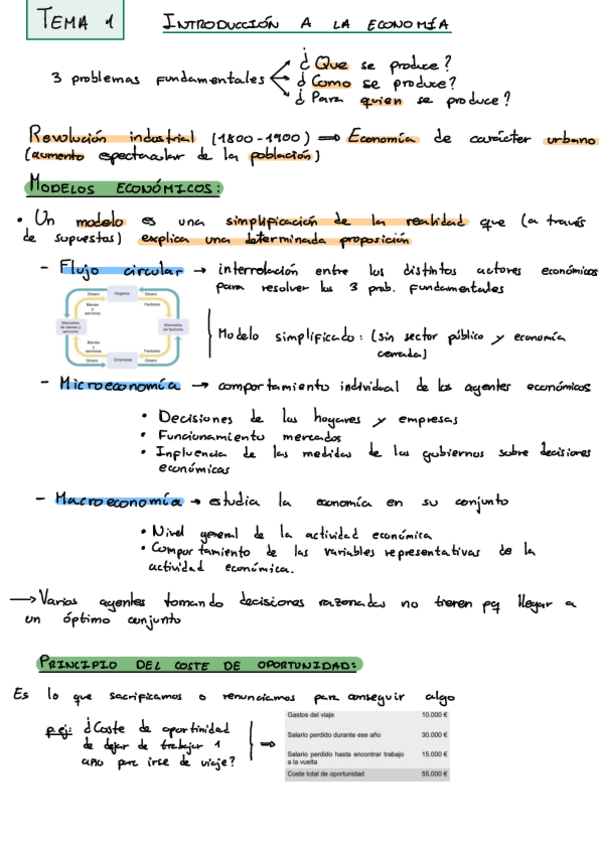 TEMA 1 INTRODUCCIÓN A LA ECONOMÍA
¿Que se produce?
3 problemas fundamentales ¿Como se produce?
¿Para quien se produce?
Revolución industrial (1800-1900) ⟹ Economía de carácter urbano
(aumento espectacular de la población)
MODELOS ECONÓMICOS:
• Un modelo es una simplificación de la realidad que (a través
de supuestos) explica una determinada proposición
- Flujo circular → interrelación entre los distintos actores económicos
para resolver los 3 prob. fundamentales
Dinero Hogares Dinero
Bienes y servicios Factores
Mercados de bienes y servicios Mercados de factores
Bienes y servicios Factores
Dinero Empresas Dinero
Modelo simplificado: (sin sector público y economía
cerrada)
- Microeconomía → comportamiento individual de los agentes económicos
• Decisiones de los hogares y empresas
• Funcionamiento mercados
• Influencia de las medidas de los gobiernos sobre decisiones
económicas
- Macroeconomía → estudia la economía en su conjunto
• Nivel general de la actividad económica
• Comportamiento de las variables representativas de la
actividad económica.
→ Varios agentes tomando decisiones razonadas no tienen pq llegar a
un óptimo conjunto
PRINCIPIO DEL COSTE DE OPORTUNIDAD:
Es lo que sacrificamos o renunciamos para conseguir algo
p.ej: ¿Coste de oportinidad
de dejar de trabajar 1
año para irse de viaje? ⟹
Gastos del viaje 10.000 €
Salario perdido durante ese año 30.000 €
Salario perdido hasta encontrar trabajo 15.000 €
a la vuelta
Coste total de oportunidad 55.000 €